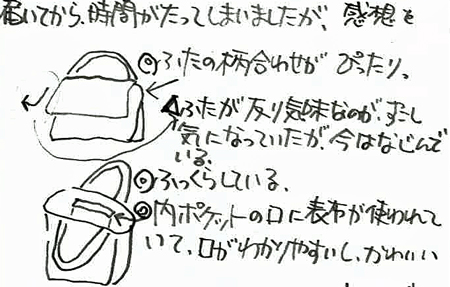 届いてから、時間がたってしまいましたが、感想を
◎ふたの柄合わせが ぴったり。
△ふたが反り気味なのが、すこし
気になっていたが、今はなじんで
いる。
◎ふっくらしている。
◎内ポケットの口に表布が使われて
いて、口がわかりやすいし、かわいい